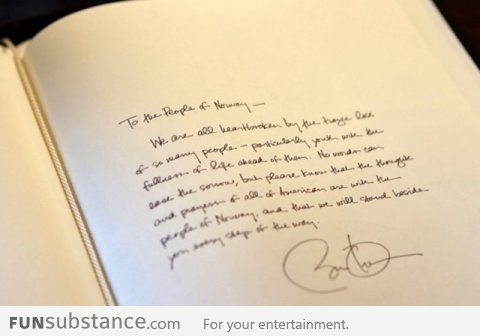 To the People of Norway —
We are all heartbroken by the tragic loss
of so many people – particularly youth with the
fullness of life ahead of them. No words can
ease the sorrow, but please know that the thoughts
and prayers of all of American are with the
people of Norway, and that we will stand beside
you every step of the way.
FUNsubstance.com For your entertainment.